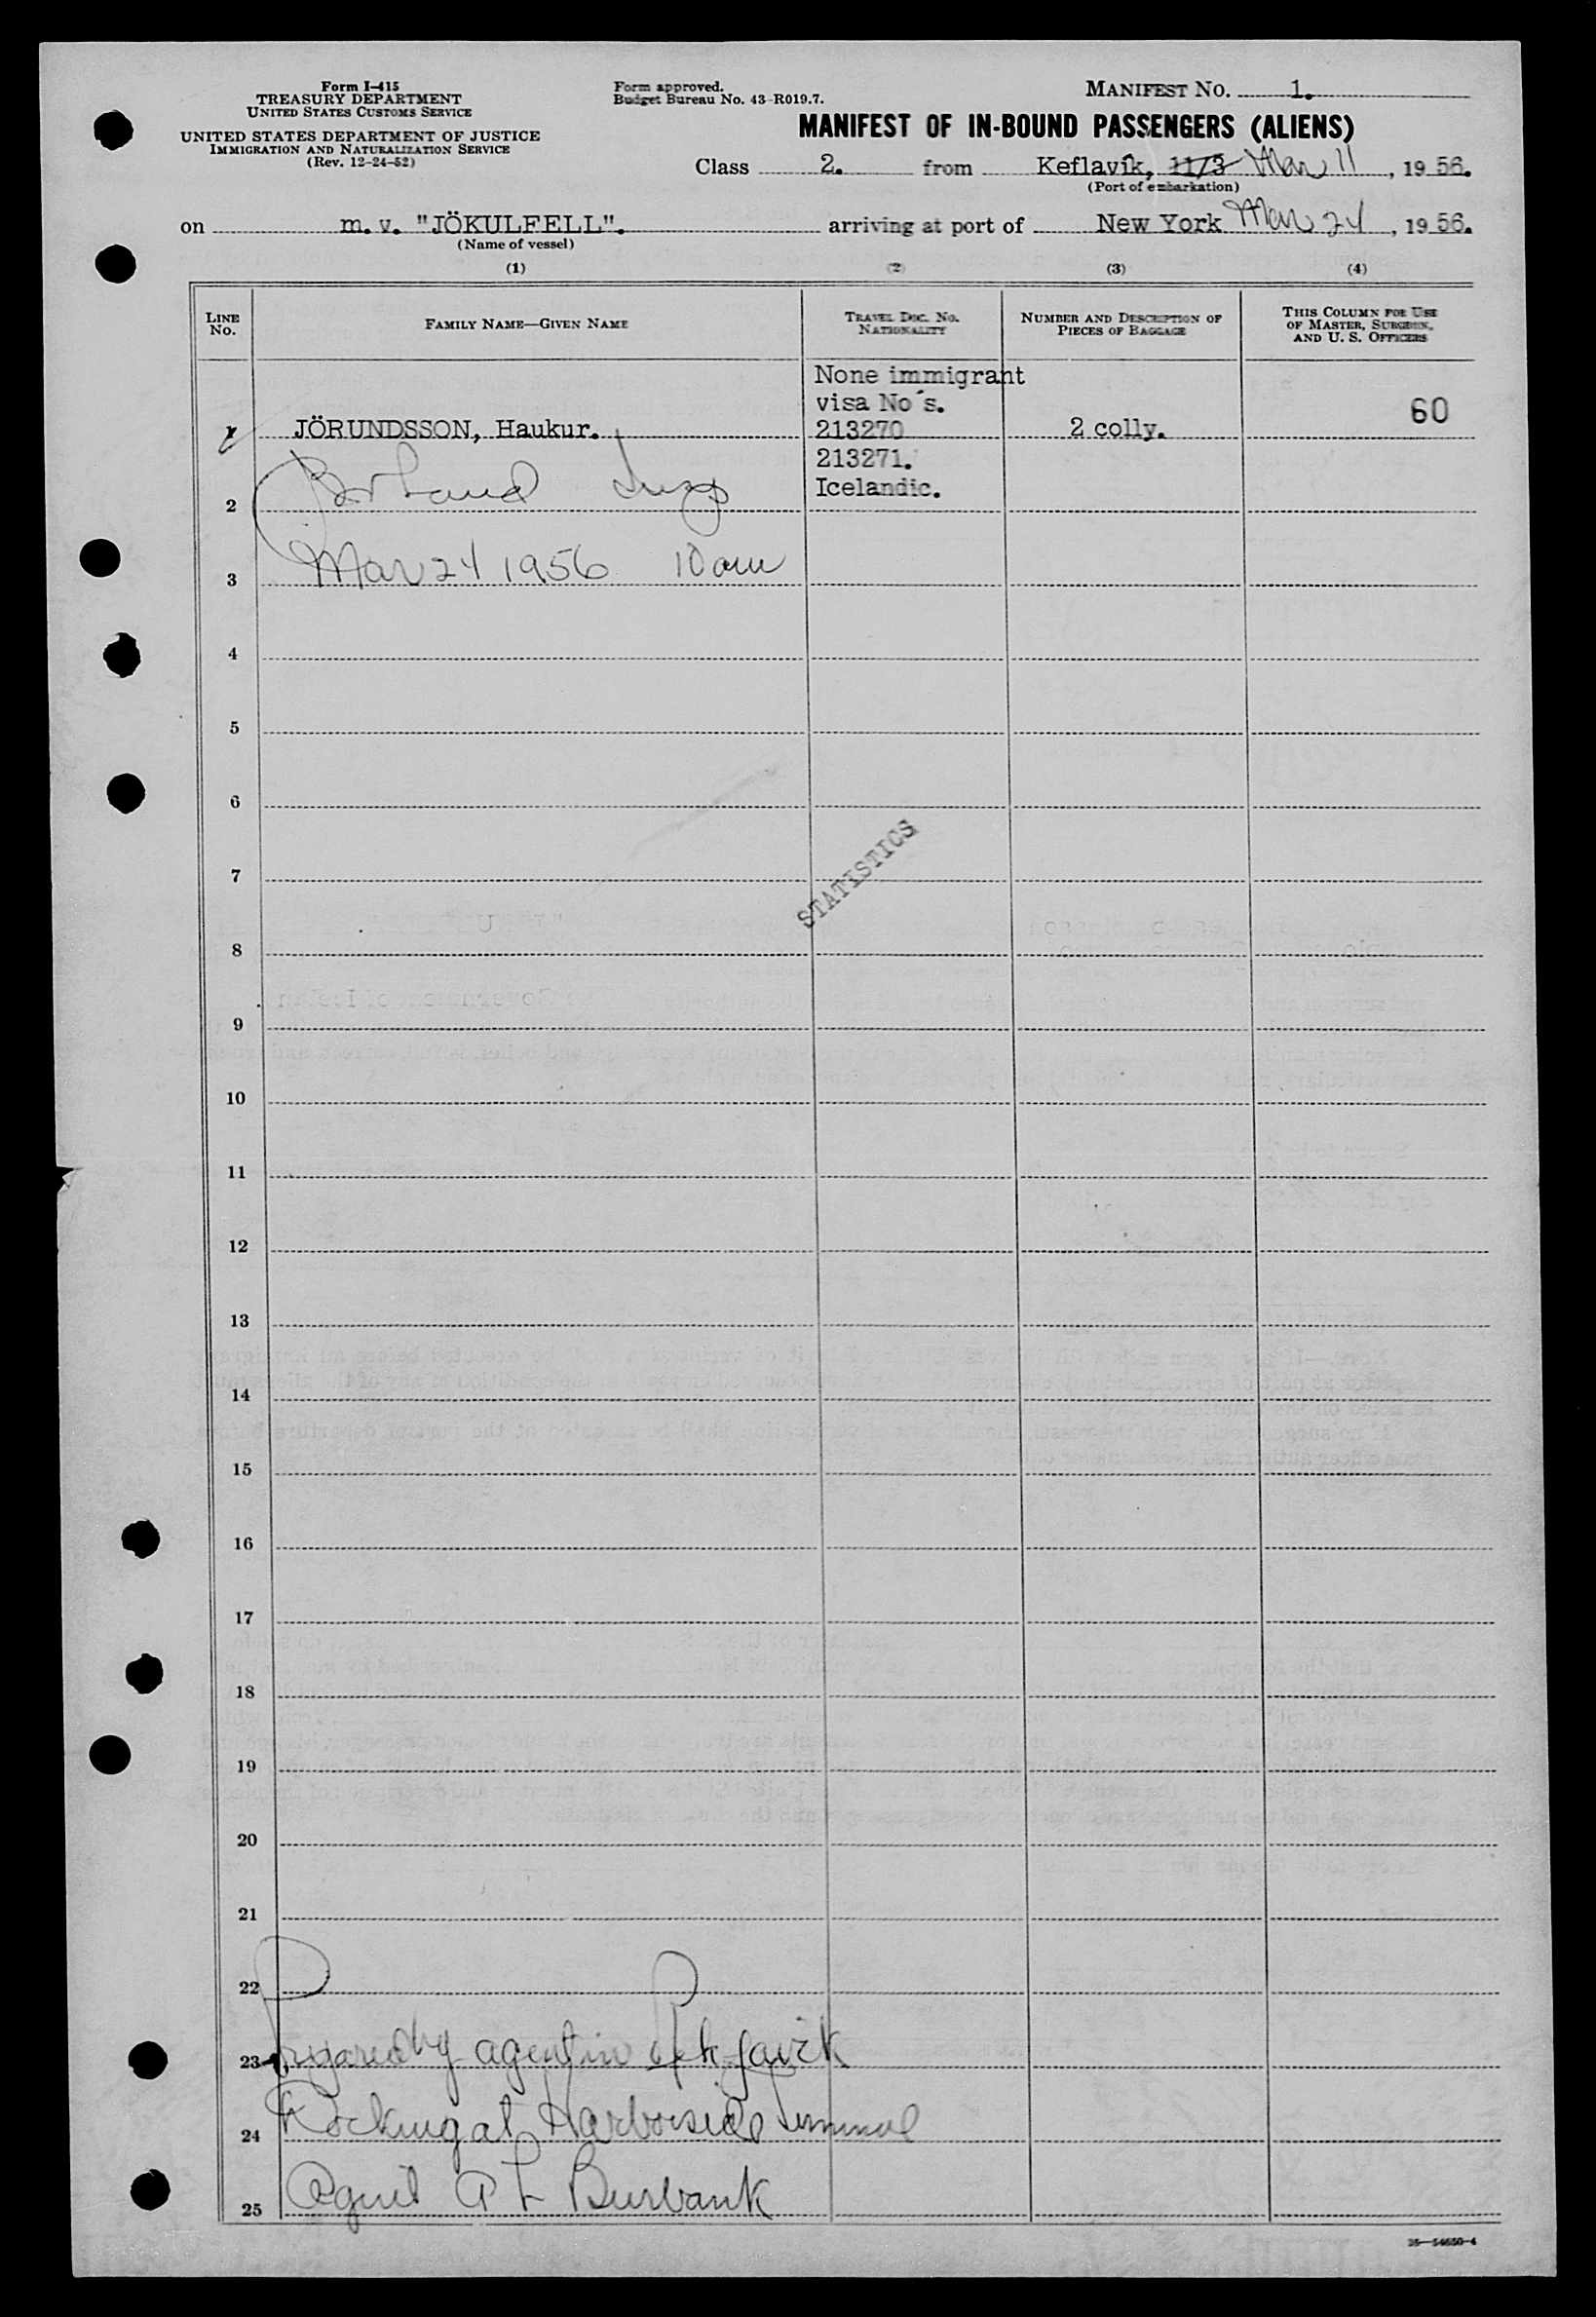 Form I-415
TREASURY DEPARTMENT
UNITED STATES CUSTOMS SERVICE
UNITED STATES DEPARTMENT OF JUSTICE
IMMIGRATION AND NATURALIZATION SERVICE
(Rev. 12-24-52)
Form approved.
Budget Bureau No. 43-R019.7.
MANIFEST NO. 1.
MANIFEST OF IN-BOUND PASSENGERS (ALIENS)
Class 2. from Keflavík, 11/3 Mar 11, 1956.
(Port of embarkation)
on m. v. "JÖKULFELL". arriving at port of New York Mar 24, 1956.
(Name of vessel)
(1) (2) (3) (4)
LINE NO.
FAMILY NAME—GIVEN NAME
TRAVEL DOC. NO. NATIONALITY
NUMBER AND DESCRIPTION OF PIECES OF BAGGAGE
THIS COLUMN FOR USE OF MASTER, SURGEON, AND U. S. OFFICERS
None immigrant
visa No´s.
1 JÖRUNDSSON, Haukur. 213270 2 colly. 60
213271.
Icelandic.
2
3 Mar 24 1956 10 am
4
5
6
7
STATISTICS
8
9
10
11
12
13
14
15
16
17
18
19
20
21
22
23 Prepared by agent in
24 Docking at Harborside Terminal
25 Agent A L Burbank
16—54650-4